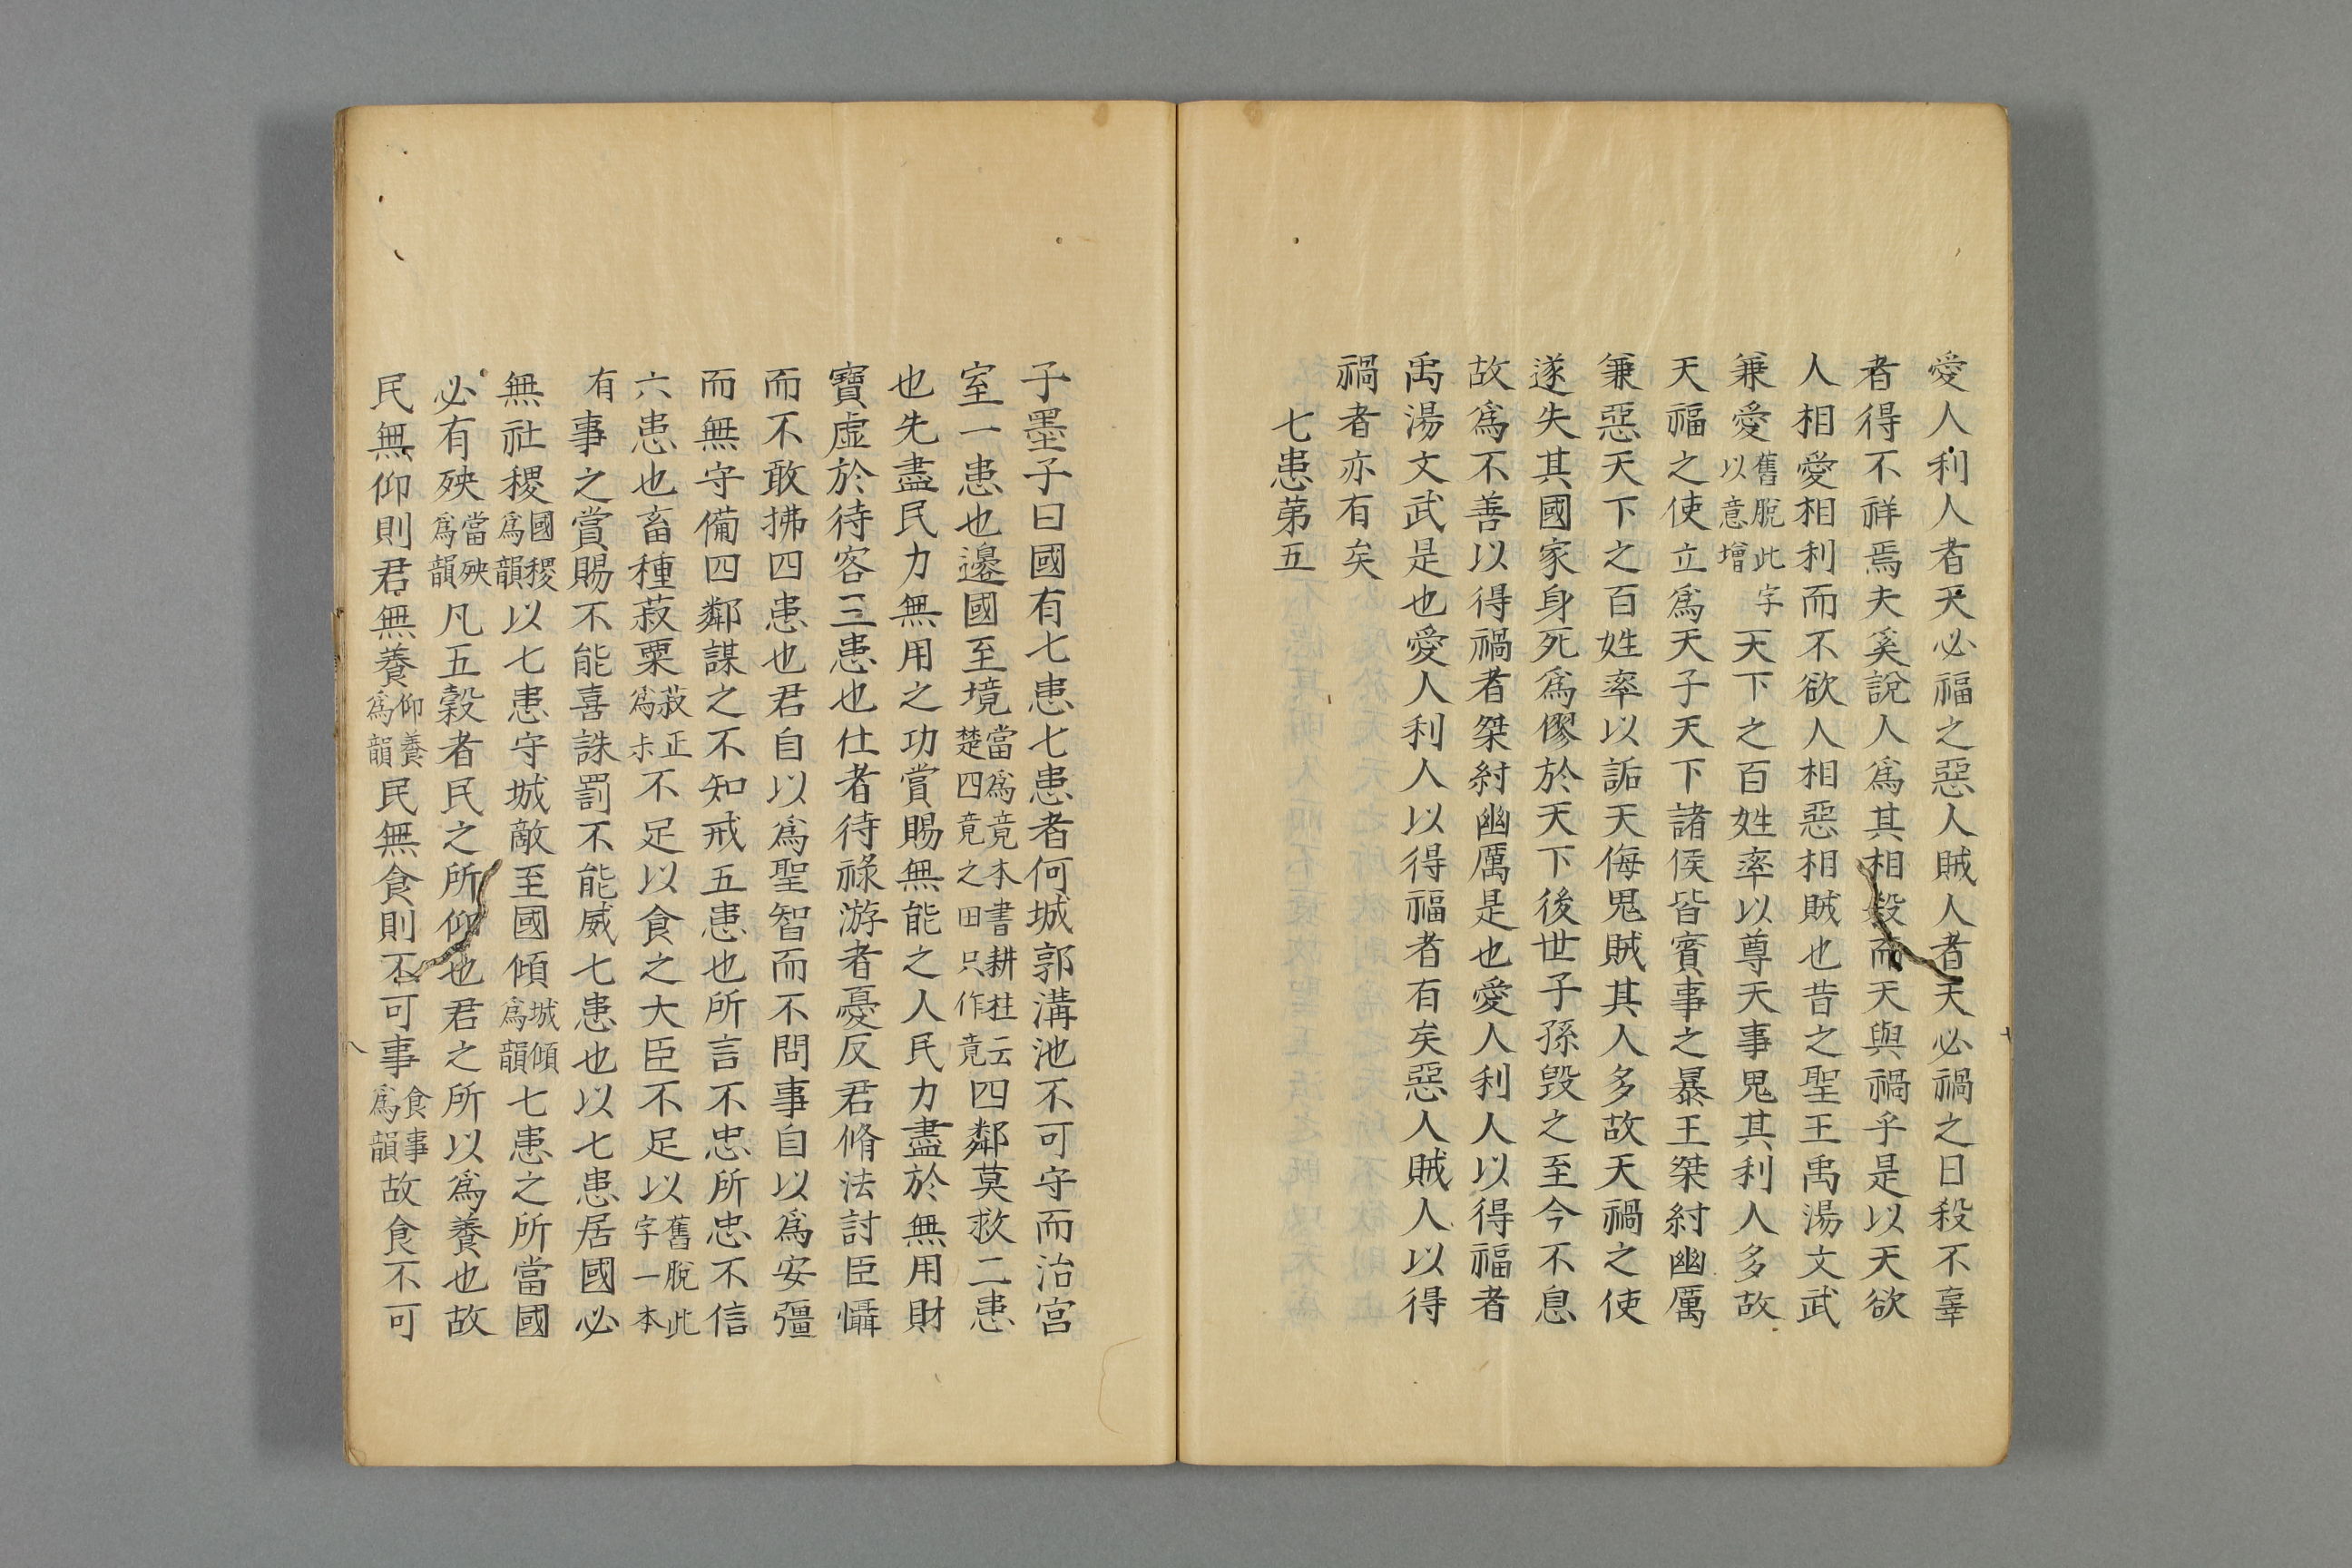 愛人利人者天必福之惡人賊人者天必禍之日殺不辜
者得不祥焉夫奚說人爲其相殺而天與禍乎是以天欲
人相愛相利而不欲人相惡相賊也昔之聖王禹湯文武
兼愛舊脫此字以意增天下之百姓率以尊天事鬼其利人多故
天福之使立爲天子天下諸侯皆賓事之暴王桀紂幽厲
兼惡天下之百姓率以詬天侮鬼賊其人多故天禍之使
遂失其國家身死爲僇於天下後世子孫毀之至今不息
故爲不善以得禍者桀紂幽厲是也愛人利人以得福者
禹湯文武是也愛人利人以得福者有矣惡人賊人以得
禍者亦有矣
七患苐五
子墨子曰國有七患七患者何城郭溝池不可守而治宮
室一患也邊國至境當爲竟本書耕柱云楚四竟之田只作竟四鄰莫救二患
也先盡民力無用之功賞賜無能之人民力盡於無用財
寶虛於待客三患也仕者待祿游者憂反君脩法討臣懾
而不敢拂四患也君自以爲聖智而不問事自以爲安彊
而無守備四鄰謀之不知戒五患也所言不忠所忠不信
六患也畜種菽粟菽正爲尗不足以食之大臣不足以舊脫此字一本
有事之賞賜不能喜誅罰不能威七患也以七患居國必
無社稷國稷爲韻以七患守城敵至國傾城傾爲韻七患之所當國
必有殃當殃爲韻凡五穀者民之所仰也君之所以爲養也故
民無仰則君無養仰養爲韻民無食則不可事食事爲韻故食不可